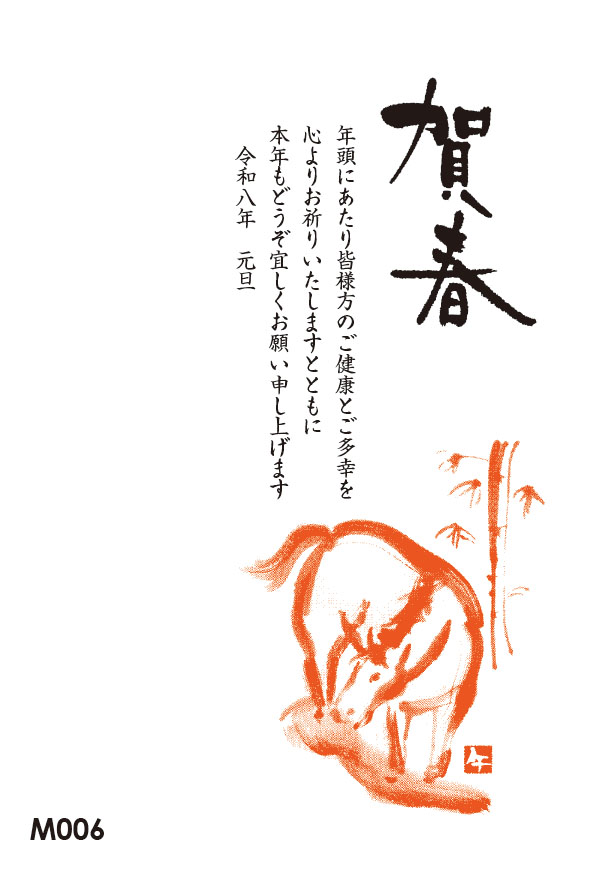 賀春
年頭にあたり皆様方のご健康とご多幸を
心よりお祈りいたしますとともに
本年もどうぞ宜しくお願い申し上げます
令和八年　元旦
午
M006